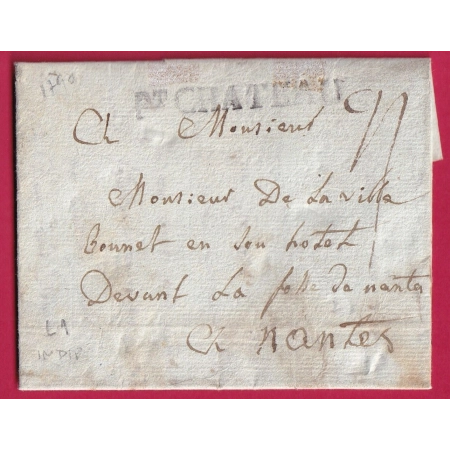 1780
Pᵀ CHATEAU
A Monsieur
Monsieur De Laville
bounet en son hotel
Devant La fosse de nantes
A nantes
L1
INDIP